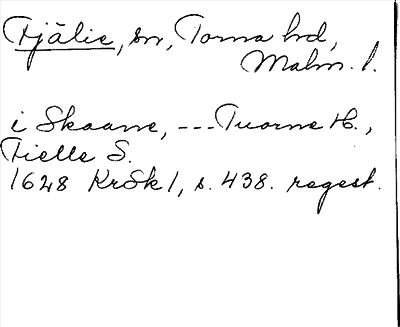 Fjälie, sn, Torna hd,
Malm. l.
i Skaane, --- Tuorne H.,
Fielle S.
1628 KrSk 1, s. 438. regest.